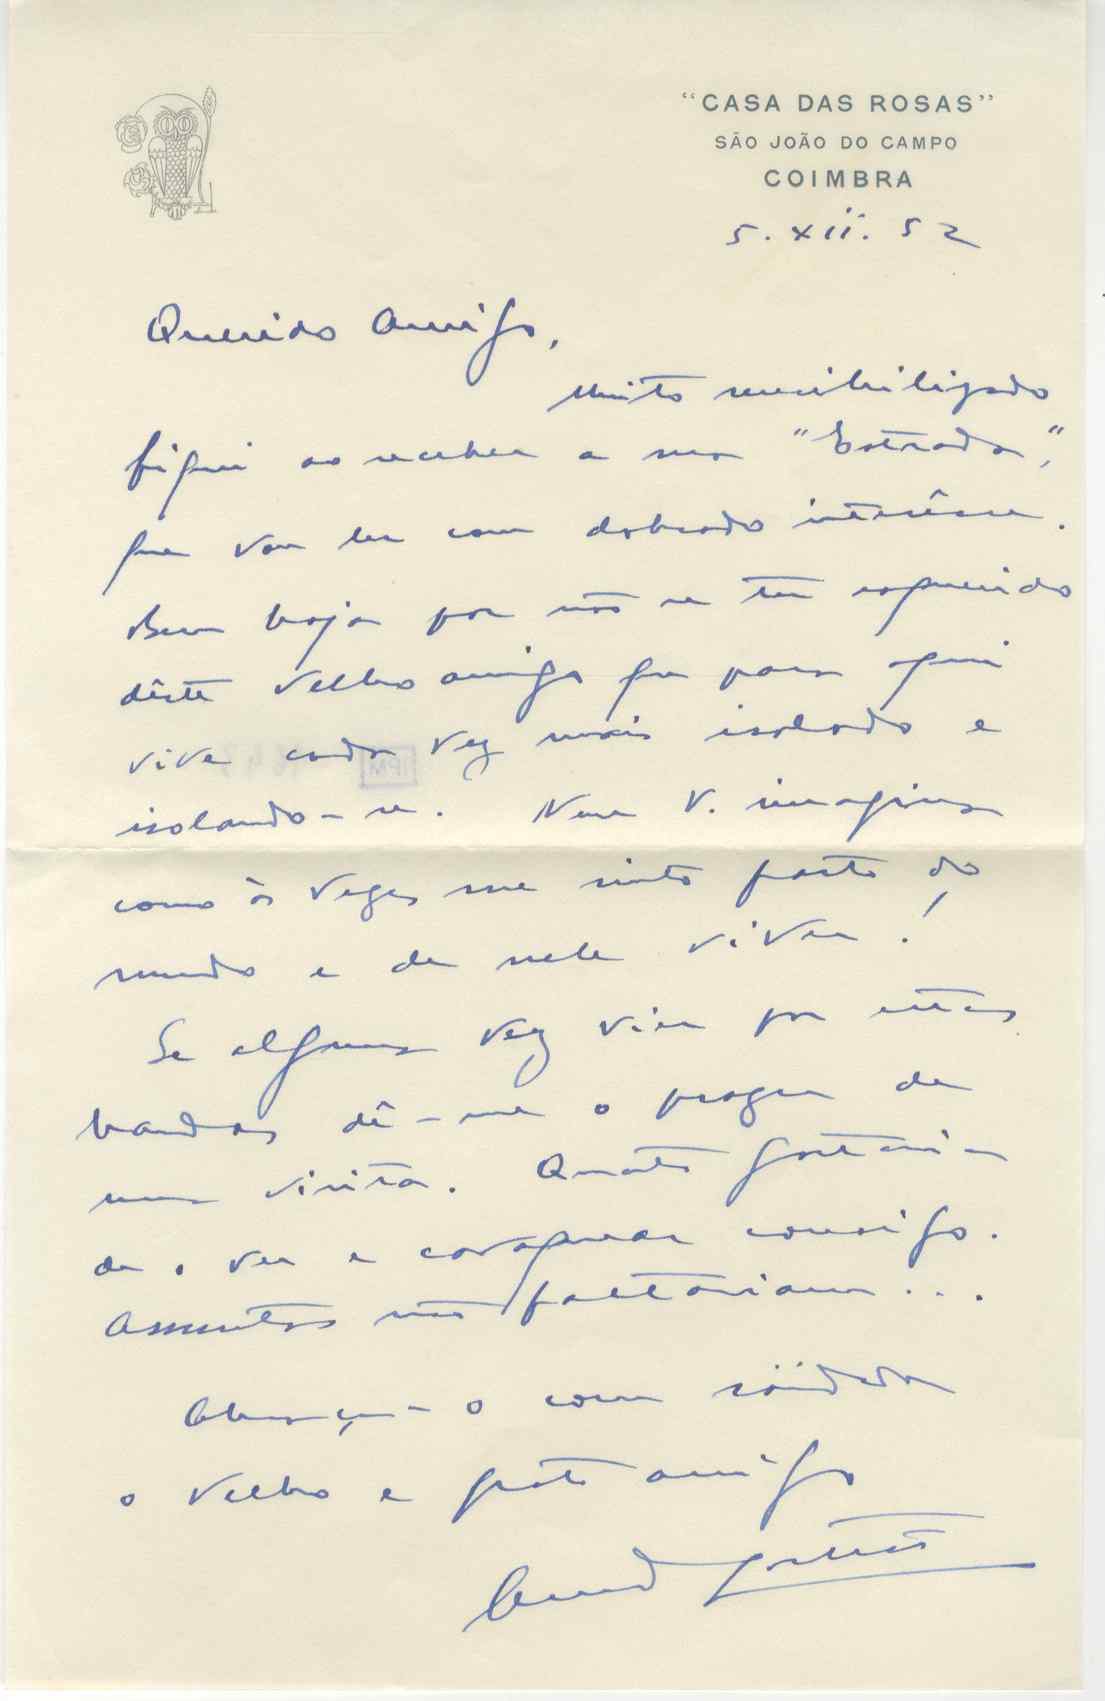 “CASA DAS ROSAS”
SÃO JOÃO DO CAMPO
COIMBRA
5.XII.52
Querido Amigo,
Muito sensibilizado
fiquei ao receber a sua "Estrada",
que vou ler com dobrado interêsse.
Bem haja por não se ter esquecido
dêste velho amigo que para aqui
vive cada vez mais isolado e
isolando-se. Nem V. imagina
como às vezes me sinto farto do
mundo e de nele viver!
Se alguma vez vier por estas
bandas dê-me o prazer de
uma visita. Quanto gostaria
de o ver e cavaquear consigo.
Assuntos não faltariam...
Abraça-o com saüdade
o velho e grato amigo
IPM